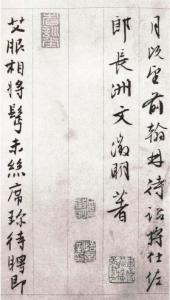 月既望前翰林待詔將仕佐
郎長洲文徵明著
艾服相將鬢未絲席珍待聘即